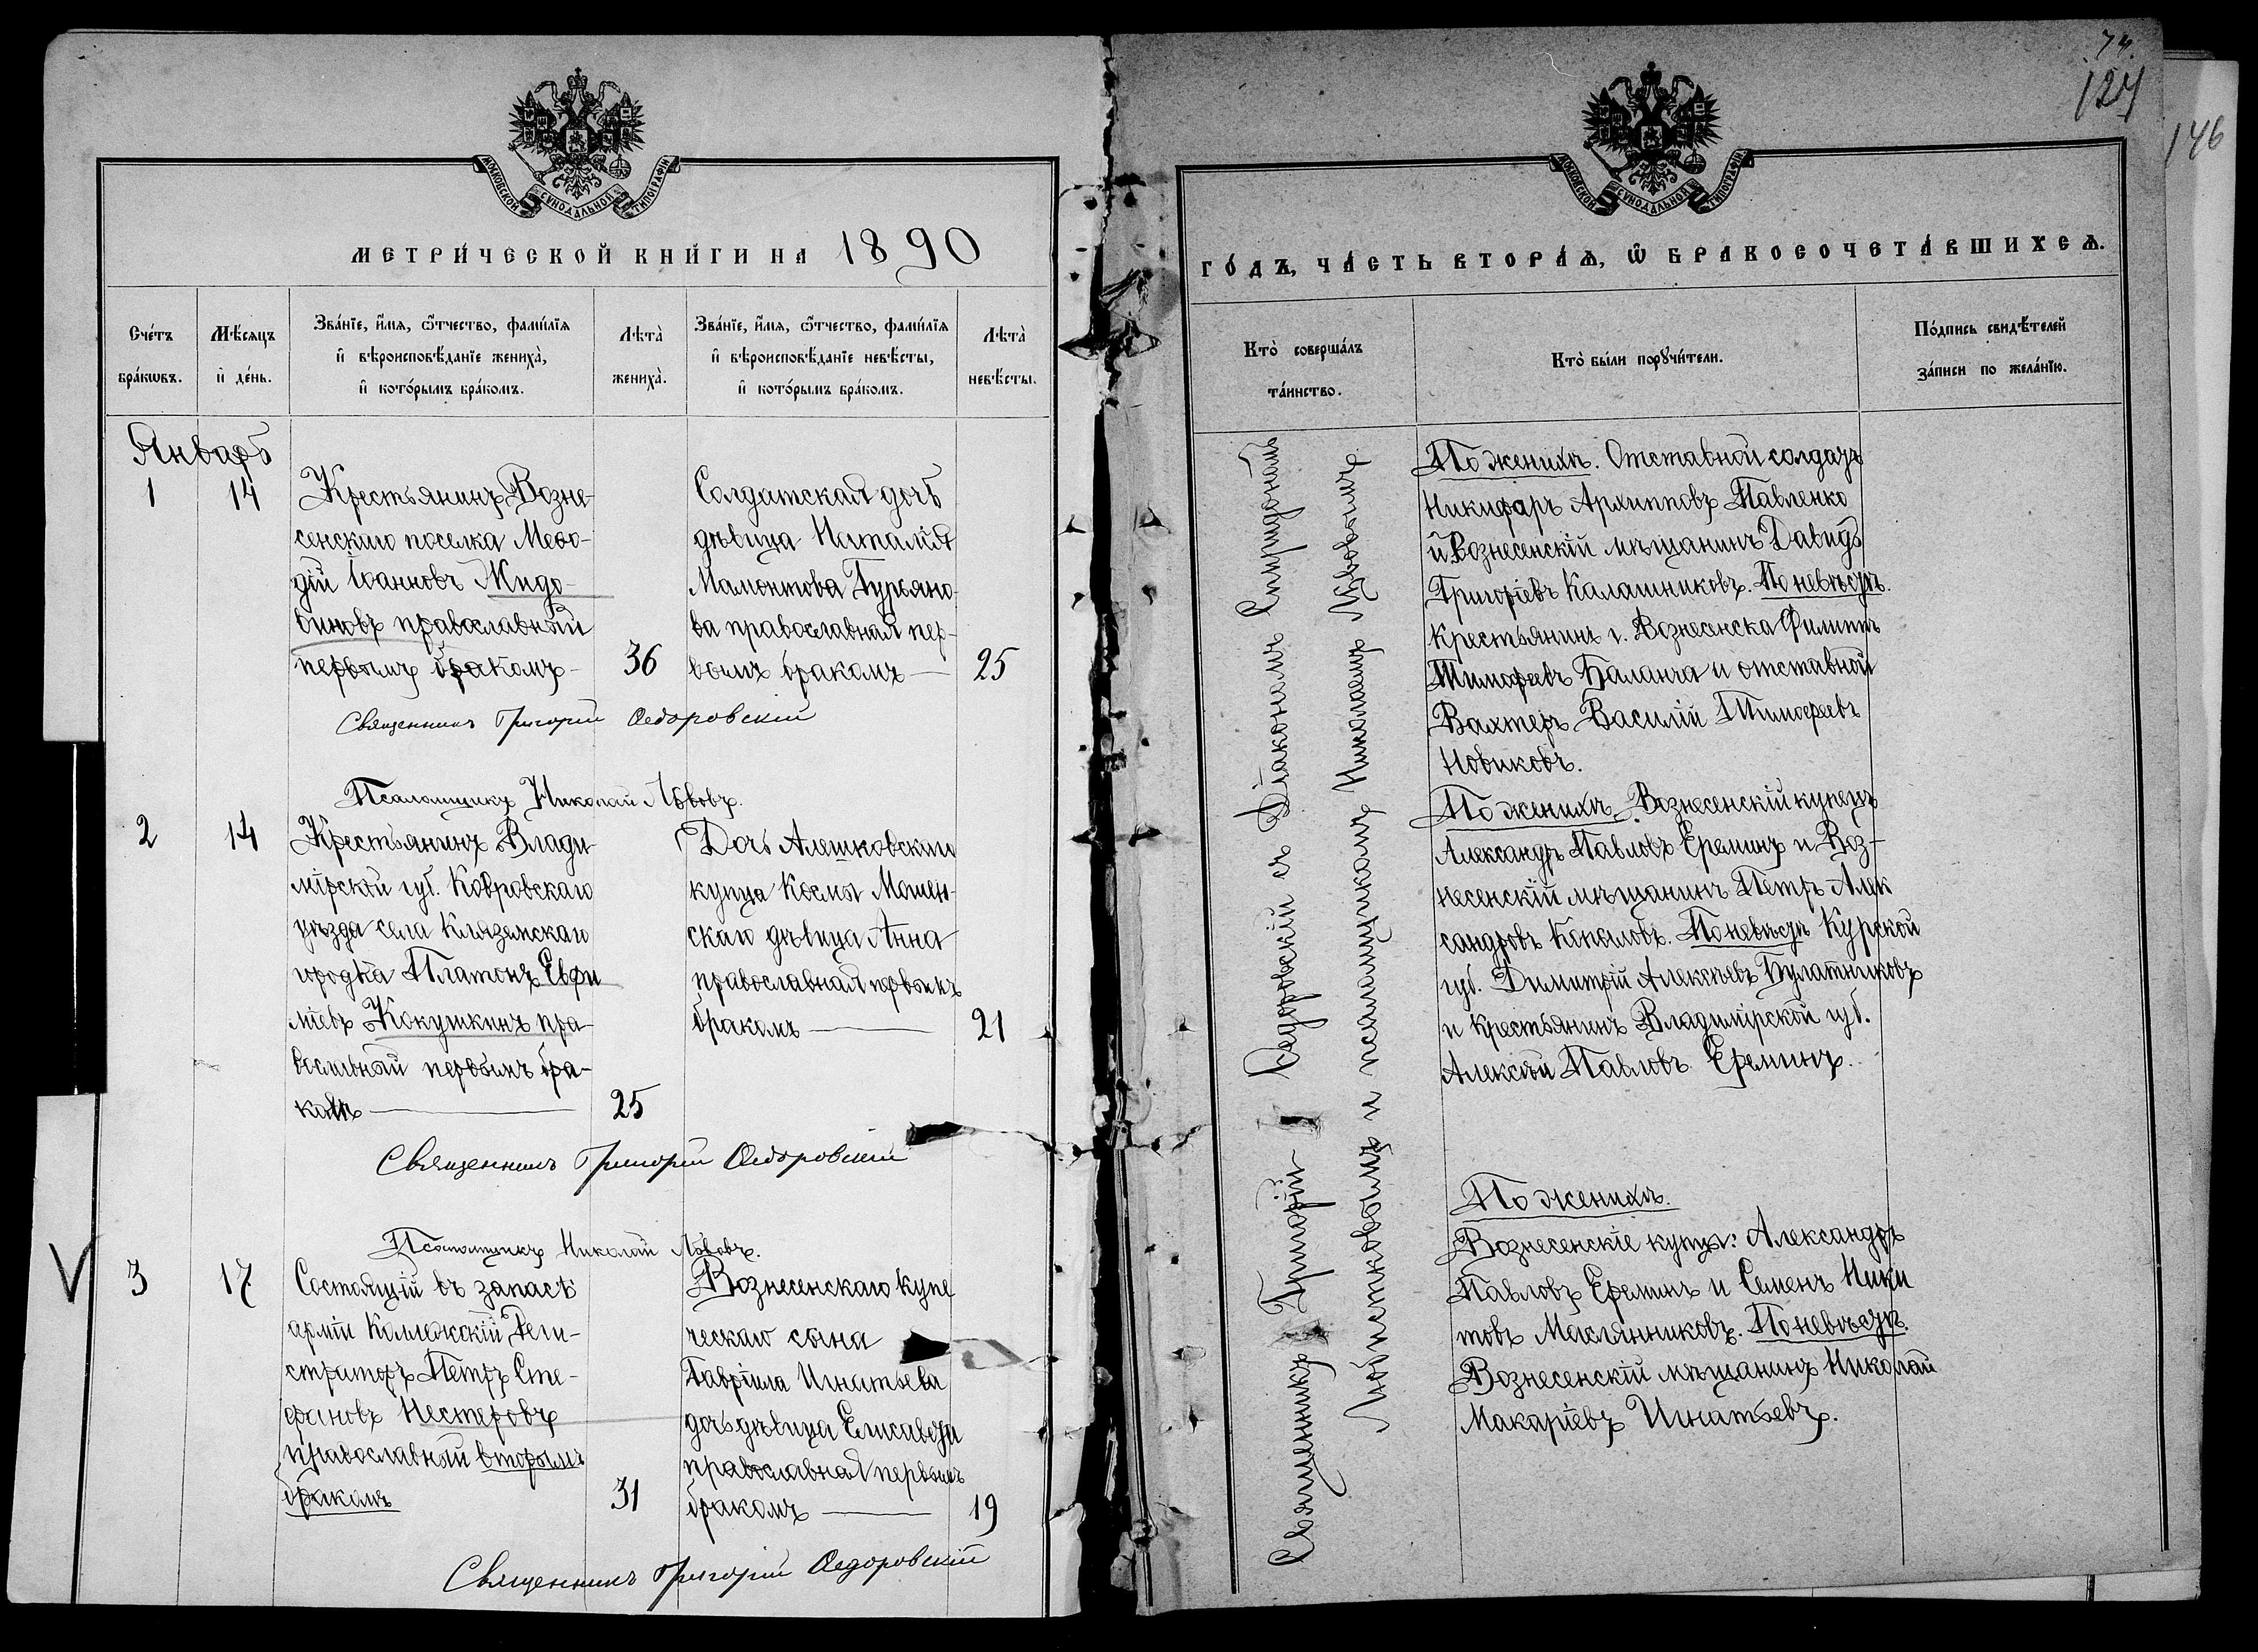 МОСКОВСКОЙ СѴНОДАЛЬНОЙ ТИПОГРАФІИ
МЕТРИ́ЧЕСКОЙ КНИ́ГИ НА 1890
Сче́тъ бра́кѡвъ.
Мѣ́сяцъ и҆ де́нь.
Зва́нїе, и҆́мя, ѻ҆́тчество, фами́лїя
и҆ вѣроисповѣ́данїе жениха̀,
и҆ кото́рымъ бра́комъ.
Лѣта̀ жениха̀.
Зва́нїе, и҆́мя, ѻ҆́тчество, фами́лїя
и҆ вѣроисповѣ́данїе невѣ́сты,
и҆ кото́рымъ бра́комъ.
Лѣта̀ невѣ́сты.
Январь
1 14
Крестьянинъ Возне-
сенскаго поселка Меѳо-
дій Іоанновъ Жидо-
виновъ православный
первымъ бракомъ- 36
Солдатская дочь
дѣвица Наталія
Мамонтова Гурьяно-
ва православная пер-
вымъ бракомъ — 25
Священникъ Григорій Ѳедоровскій
Псаломщикъ Николай Львовъ.
2 14
Крестьянинъ Влади-
мірской губ. Ковровскаго
уѣзда села Клязьмскаго
городка Платонъ Евфи
міевъ Кокушкинъ пра-
вославный первымъ бра-
комъ — 25
Дочь Алешковскаго
купца Космы
скаго дѣвица Анна
православная первымъ
бракомъ — 21
Священникъ Григорій Ѳедоровскій
Псаломщикъ Николай Львовъ.
V 3 17
Состоящій въ запасѣ
арміи Коллежскій Реги-
страторъ Петръ Сте-
фановъ Нестеровъ
православный вторымъ
бракомъ 31
Вознесенскаго купе
ческаго сына
Гавріила Игнатьева
дочь дѣвица Елисавета
православная первымъ
бракомъ — 19
Священникъ Григорій Ѳедоровскій
74.
124
146
МОСКОВСКОЙ СѴНОДАЛЬНОЙ ТИПОГРАФІИ
ГО́ДЪ, ЧА́СТЬ ВТОРА́Ѧ, Ѽ БРАКОСОЧЕТА́ВШИХСѦ.
Кто̀ соверша́лъ
та́инство.
Кто̀ бы́ли порꙋчи́тели.
По́дпись свидѣ́телей
за́писи по жела́нїю.
Священникъ Григорій Ѳедоровскій съ Діакономъ Спиридономъ
и псаломщикомъ Николаемъ Львовымъ
По женихѣ. Отставной солдатъ
Никифоръ Архипповъ Павленко
и Вознесенскій мѣщанинъ Давидъ
Григоріевъ Калашниковъ. По невѣстѣ.
крестьянинъ г. Вознесенска Филиппъ
Тимофеевъ Баланча и отставной
Вахтеръ Василій Тимофеевъ
Новиковъ.
По женихѣ. Вознесенскій купецъ
Александръ Павловъ Ереминъ и Воз-
несенскій мѣщанинъ Петръ Алек
сандровъ По невѣстѣ Курской
губ. Димитрій Алексѣевъ Булатниковъ
и крестьянинъ Владимірской губ.
Алексѣй Павловъ Ереминъ.
По женихѣ.
Вознесенскіе купцы: Александръ
Павловъ Ереминъ и Семенъ Ники
товъ Маслянниковъ. По невѣстѣ.
Вознесенскій мѣщанинъ Николай
Макаріевъ Игнатьевъ.